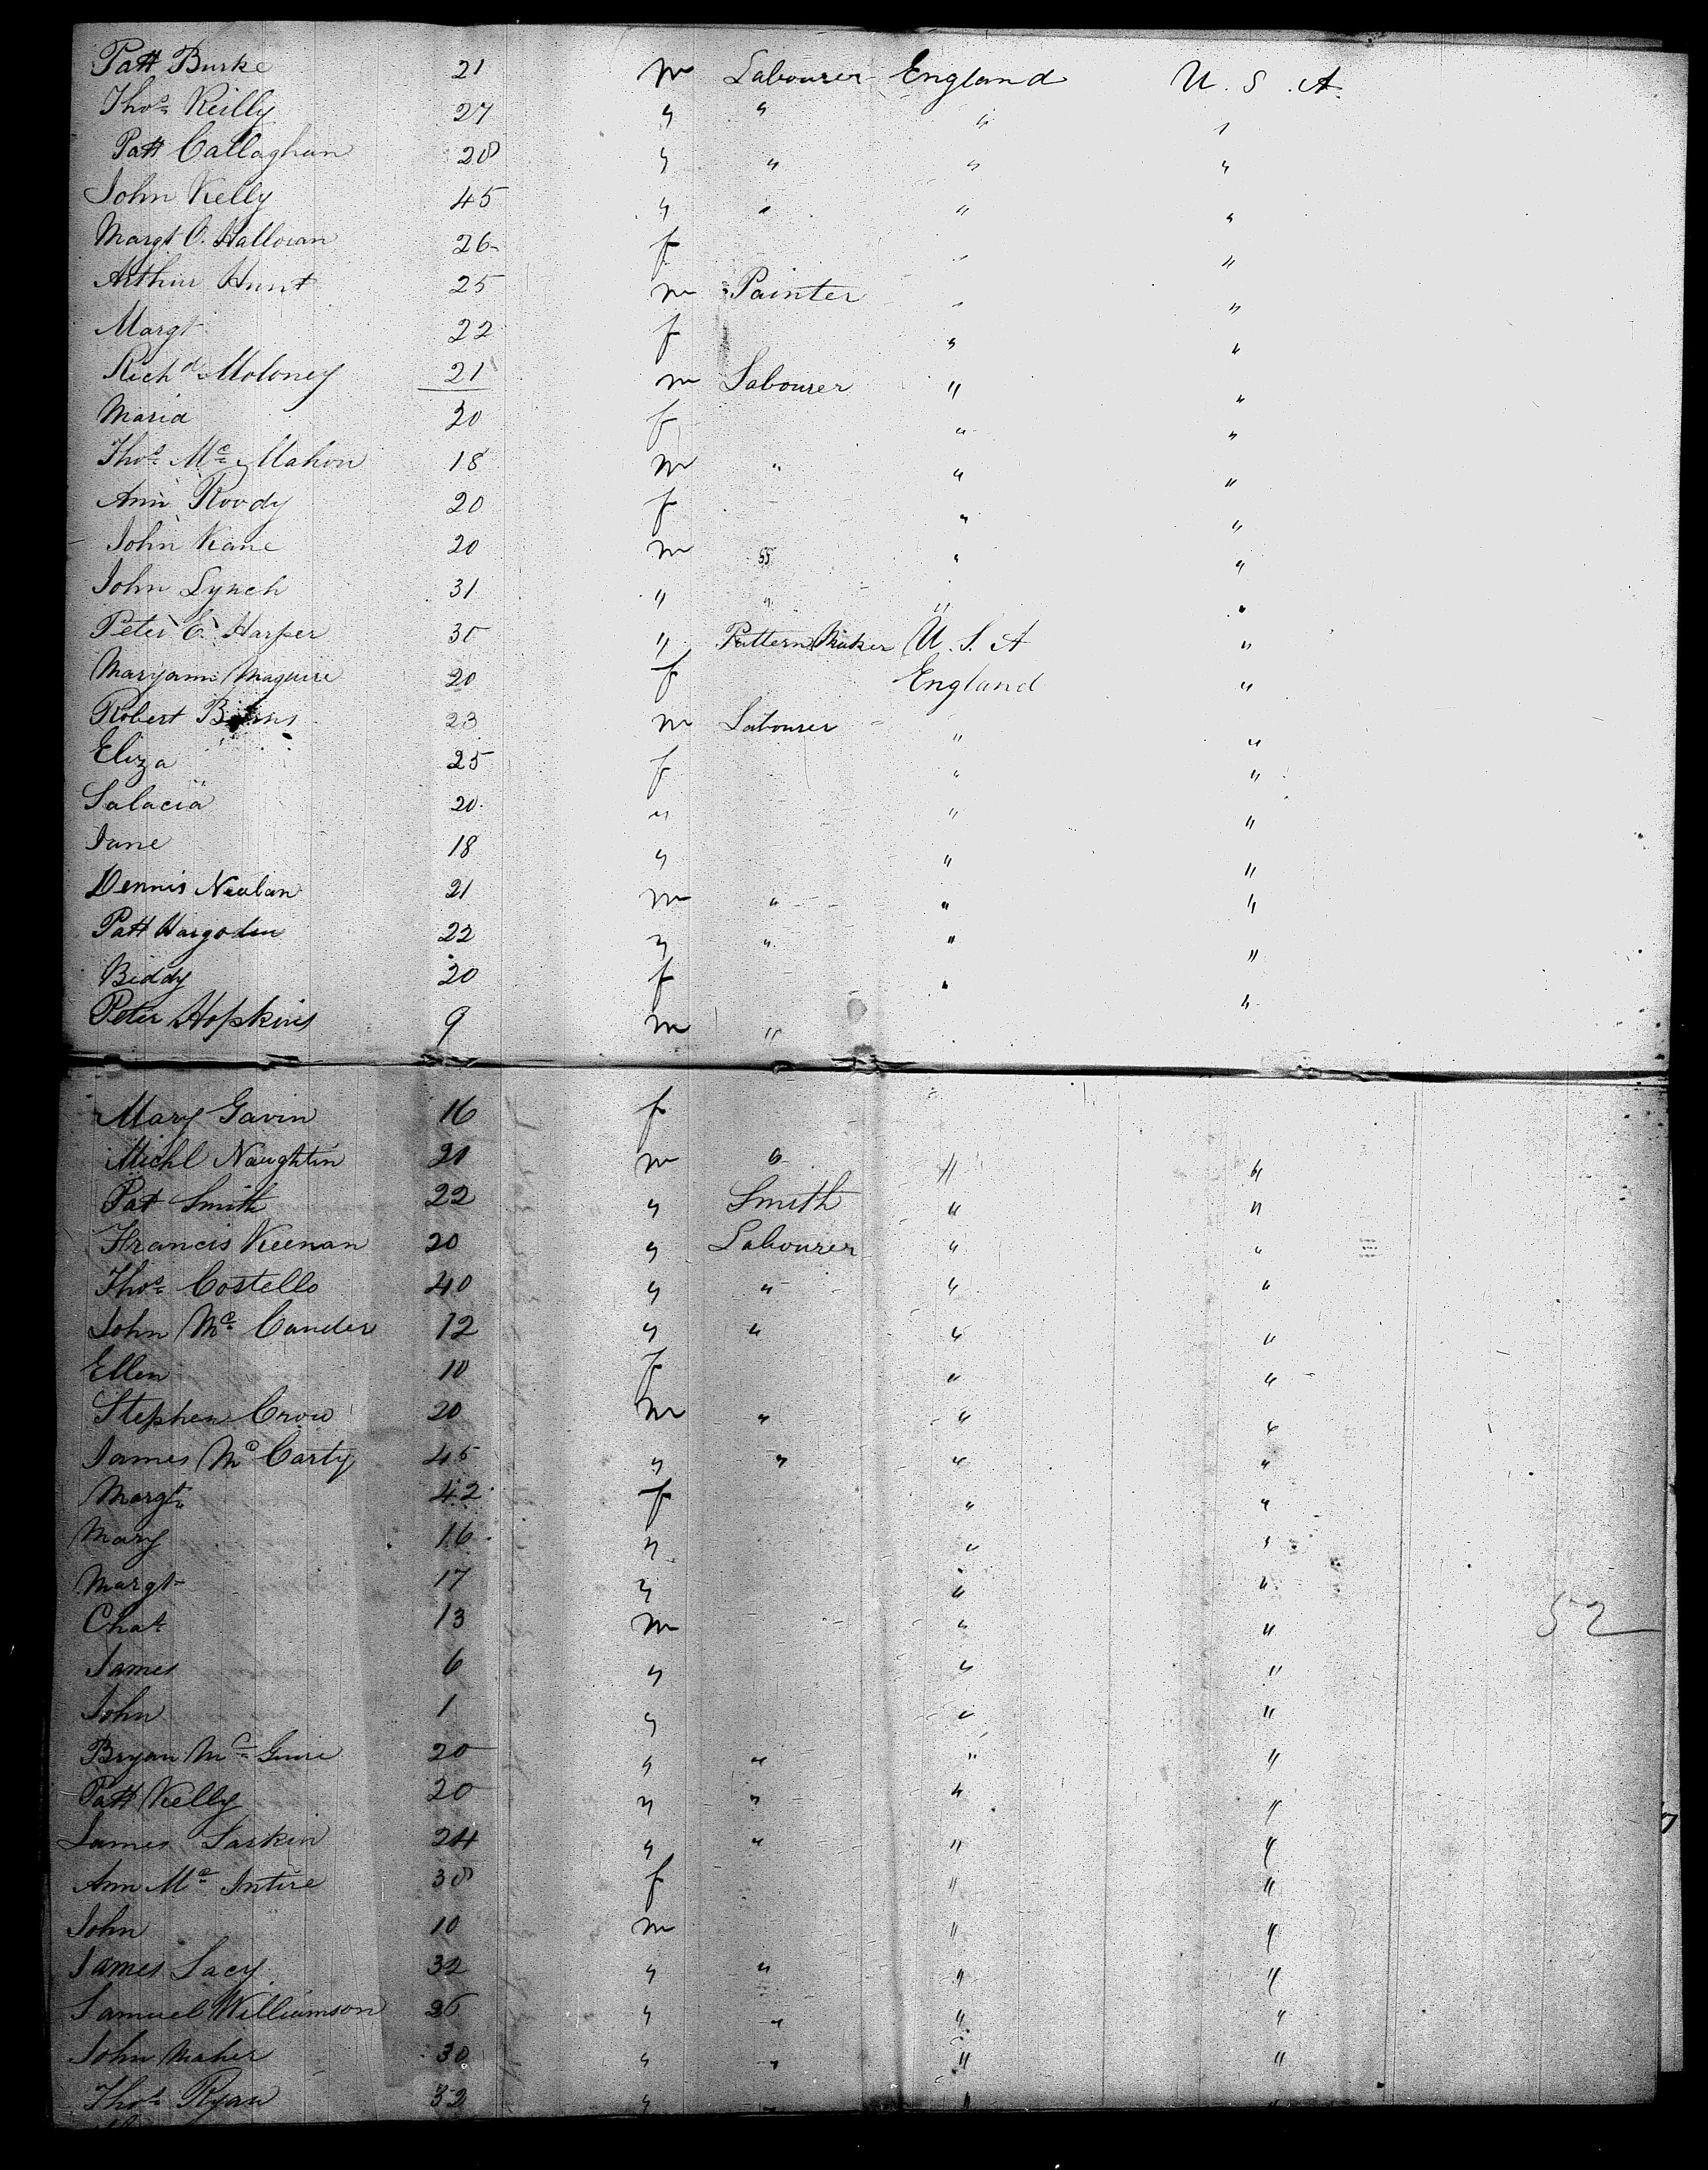 Patt Burke 21 m Labourer England U. S. A.
Thos Reilly 27 " " " "
Patt Callaghan 28 " " " "
John Kelly 45 " " " "
Margt O. Halloran 26 f " "
Arthur Hunt 25 m Painter " "
Margt 22 f " "
Richd Moloney 21 m Labourer " "
Maria 20 f " "
Thos Mc Mahon 18 m " " "
Ann Roody 20 f " "
John Kane 20 m " " "
John Lynch 31 " " " "
Peter C. Harper 35 " Pattern Maker U. S. A "
Maryann Maguire 20 f England "
Robert 23 m Labourer " "
Eliza 25 f " "
Salacia 20 " " "
Jane 18 " " "
Dennis Nealan 21 m " " "
Patt Hargodin 22 " " " "
Biddy 20 f " "
Peter Hopkins 9 m "
Mary Gavin 16 f
Michl Naughtin 21 m " " "
Pat Smith 22 " Smith " "
Francis Keenan 20 " Labourer " "
Thos Costello 40 " " " "
John Mc Cander 12 " " " "
Ellen 10 f " "
Stephen Crow 20 m " " "
James Mc Carty 45 " " " "
Margt 42 f " "
Mary 16 " " "
Margt 17 " " "
Chas 13 m " "
James 6 " " "
John 1 " " "
Bryan Mc Guire 20 " " " "
Patt Kelly 20 " " " "
James Larkin 24 " " " "
Ann Mc Intire 38 f " "
John 10 m " "
James Lacy 32 " " " "
Samuel Williamson 26 " " " "
John Maher 30 " " " "
Thos Ryan 32 " " " "
52